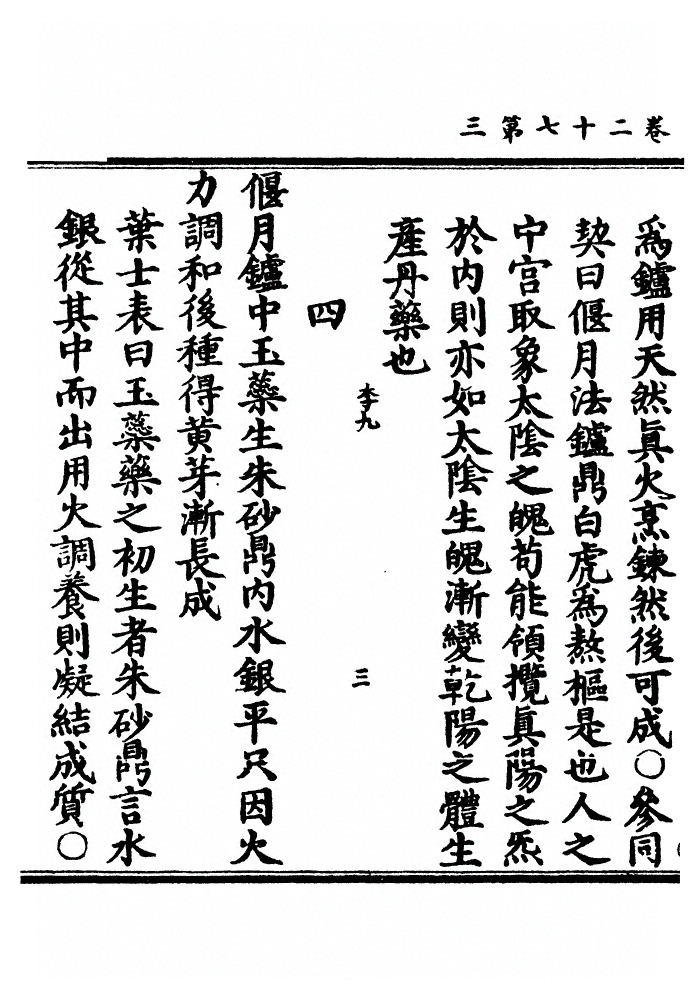 卷二十七第三
爲鑪用天然眞火烹鍊然後可成〇參同
契曰偃月法鑪鼎白虎爲熬樞是也人之
中宫取象太陰之魄苟能領攬眞陽之炁
於内則亦如太陰生魄漸變乾陽之體生
產丹藥也
李九
三
四
偃月鑪中玉蘂生朱砂鼎内水銀平只因火
力調和後種得黄芽漸長成
葉士表曰玉蘂藥之初生者朱砂鼎言水
銀從其中而出用火調養則凝結成質〇